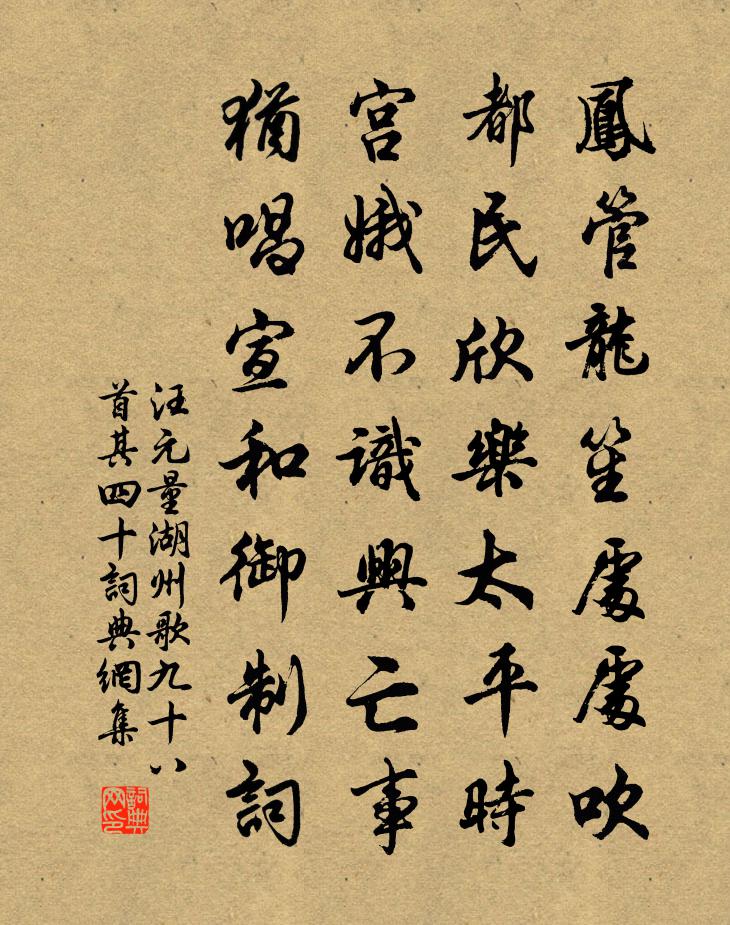 鳳管龍笙處處吹
都民欣樂太平時
宮娥不識興亡事
猶唱宣和御制詞
汪元量湖州歌九十八
首其四十詞典網集
詞典
网印